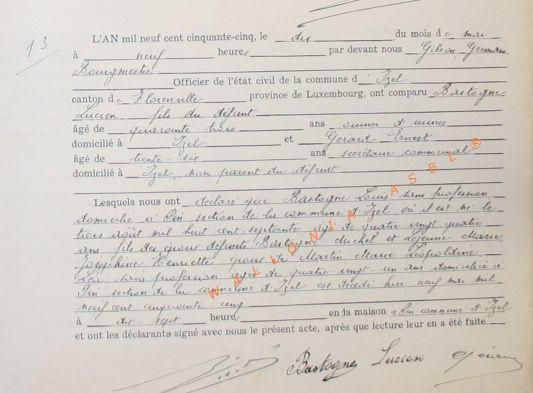 13
L'AN mil neuf cent cinquante-cinq, le dix du mois de mai
à neuf heures, par devant nous Gilson Germain
Bourgmestre Officier de l'état civil de la commune d'Izel
canton de Florenville province de Luxembourg, ont comparu Bastogne
Lucien fils du défunt
âgé de quarante-trois ans ouvrier d'usines
domicilié à Izel et Gérard Ernest
âgé de trente-six ans secrétaire communal
domicilié à Izel, non parent du défunt
Lesquels nous ont déclaré que Bastogne Louis sans profession
domicilié à Pin section de la commune d'Izel où il est né le
trois août mil huit cent septante âgé de quatre vingt quatre
ans fils des époux défunts Bastogne Michel et Lejeune Marie
Joséphine Henriette époux de Martin Marie Léopoldine
sans profession âgée de quatre-vingt-un ans domiciliée à
Pin section de la commune d'Izel est décédé hier neuf mai mil
neuf cent cinquante cinq
à dix-sept heures en la maison à Pin commune d'Izel
et ont les déclarants signé avec nous le présent acte, après lecture leur en a été faite.
Bastogne Lucien
WALLONIA ASBL ®